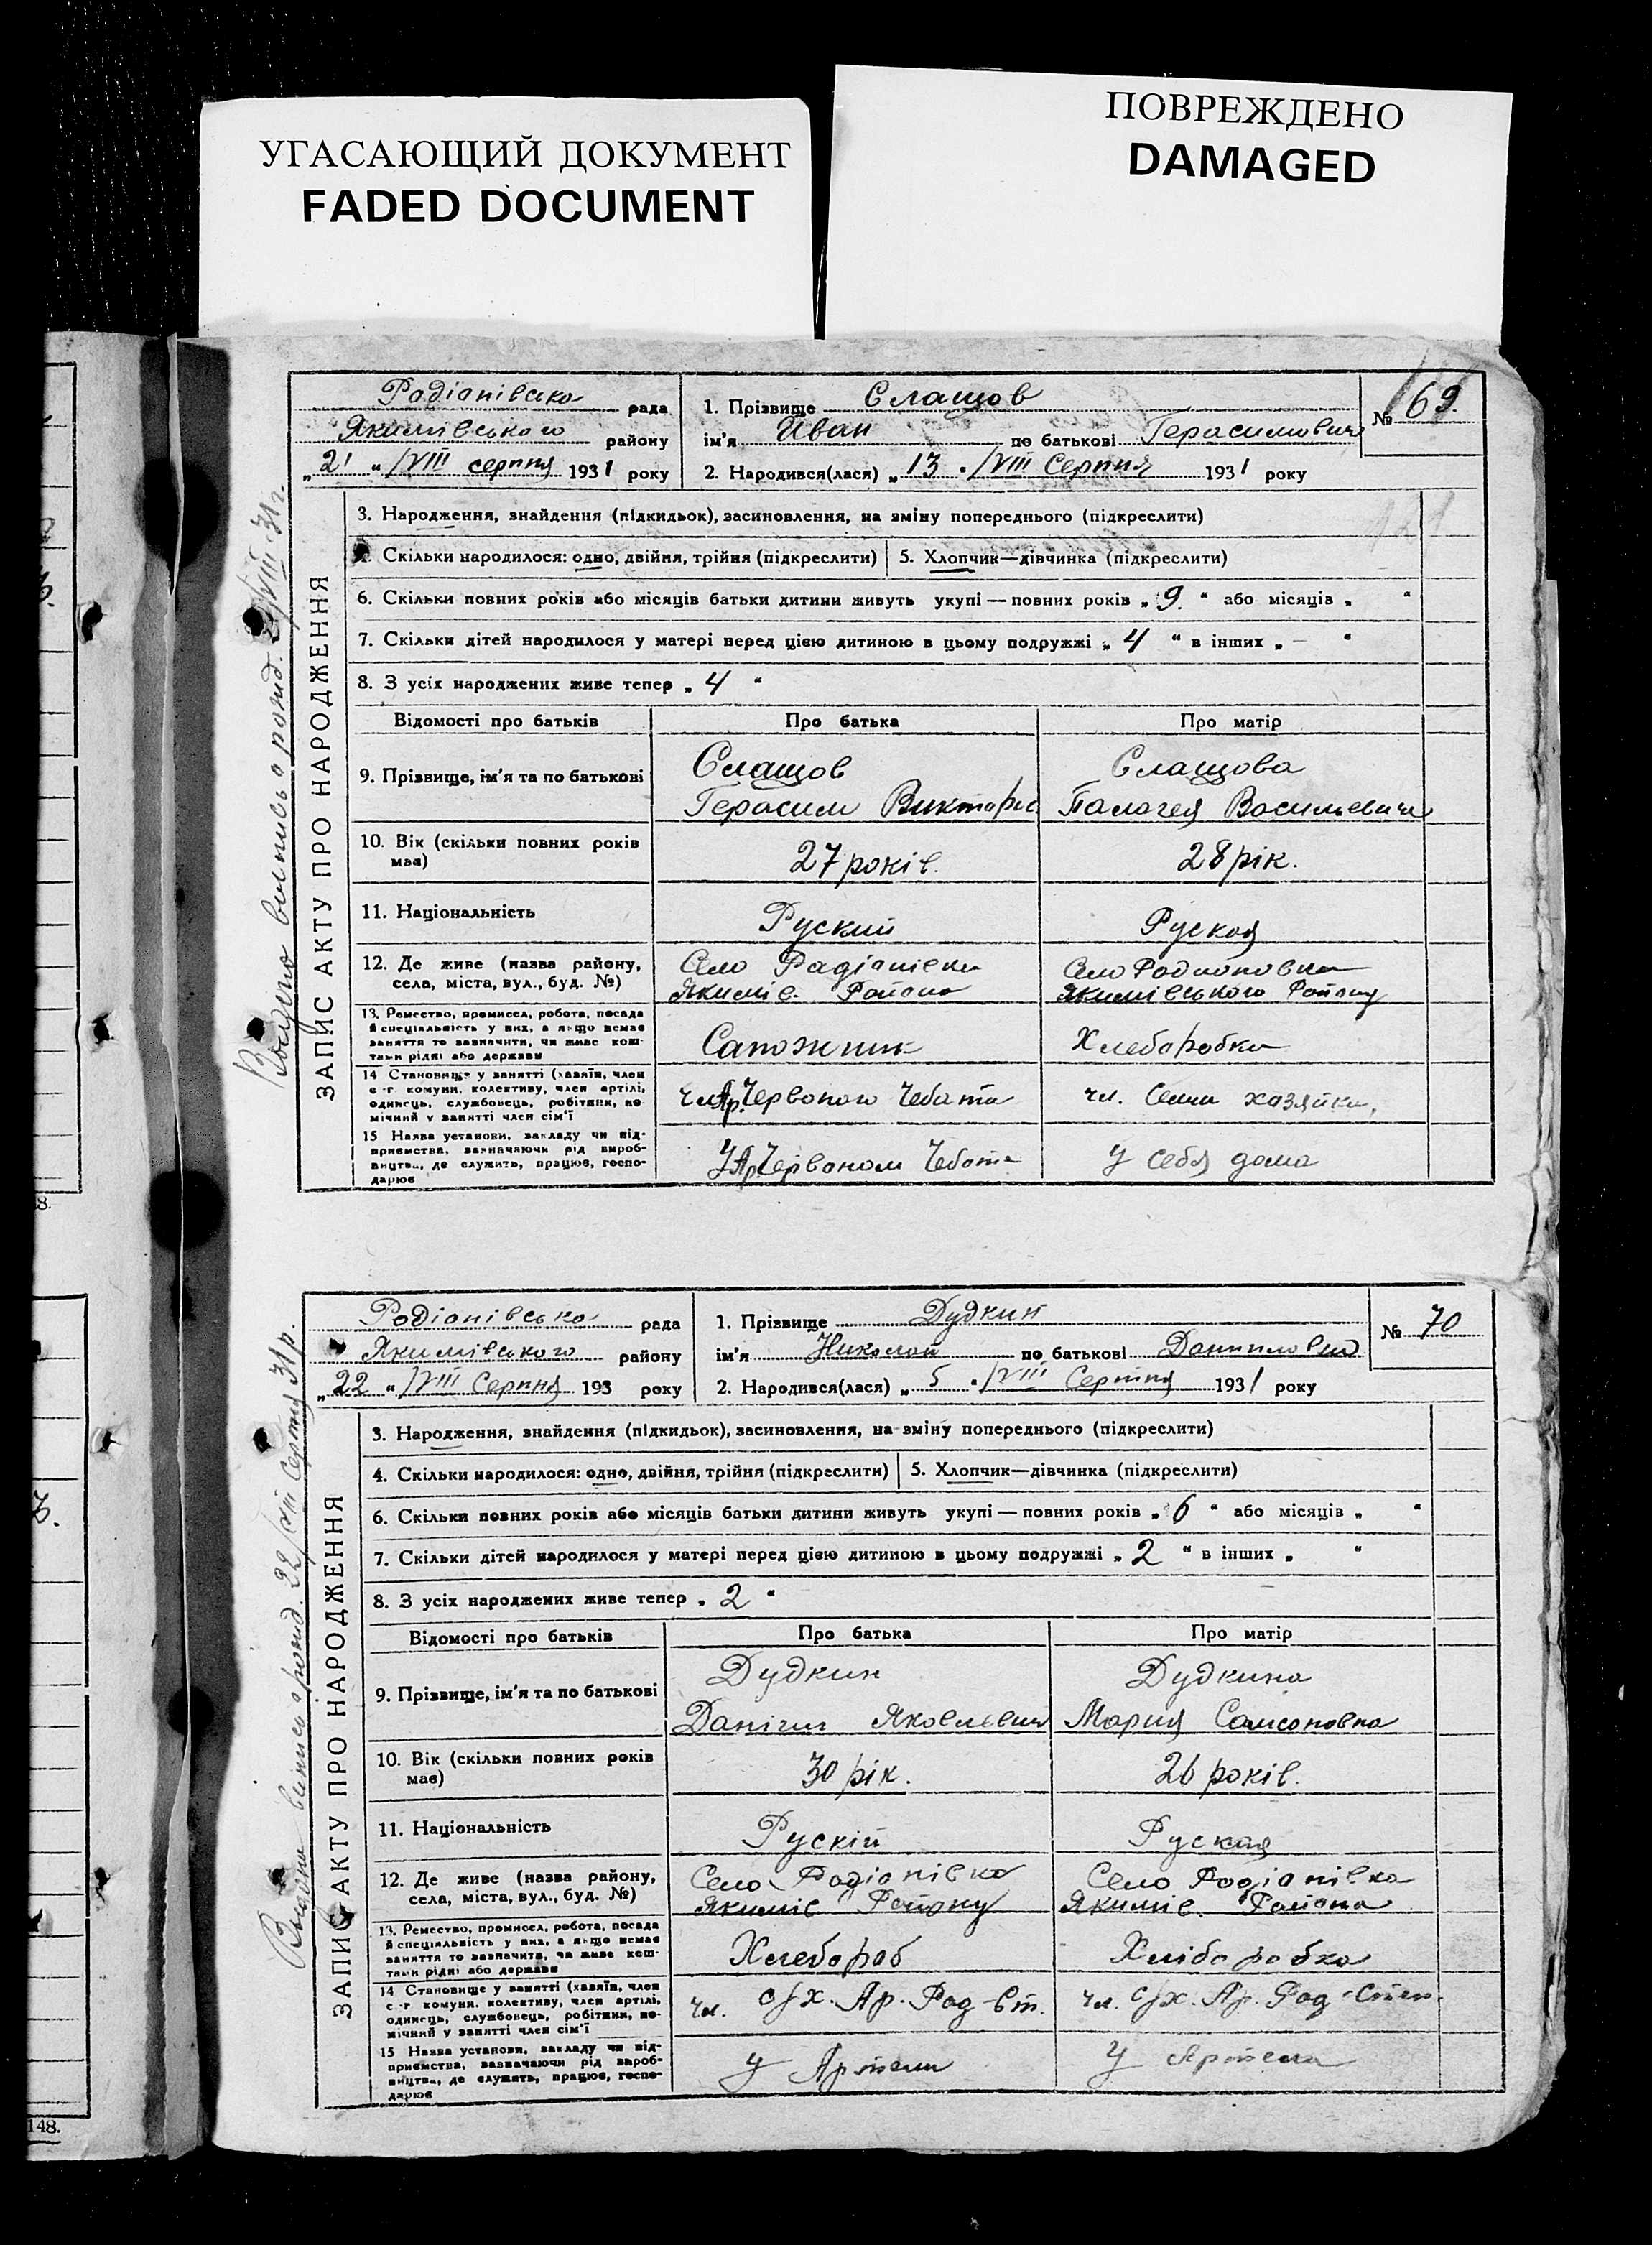 УГАСАЮЩИЙ ДОКУМЕНТ
FADED DOCUMENT
ПОВРЕЖДЕНО
DAMAGED
Радіонівська рада
Якимівського району
„21“ /VIII серпня 1931 року
1. Прізвище Слащов
ім'я Иван по батькові Герасимович
2. Народився(лася) „13“ /VIII Серпня 1931 року
№ 69.
121
ЗАПИС АКТУ ПРО НАРОДЖЕННЯ
3. Народження, знайдення (підкидьок), засиновлення, на зміну попереднього (підкреслити)
4. Скільки народилося: одно, двійня, трійня (підкреслити) 5. Хлопчик—дівчинка (підкреслити)
6. Скільки повних років або місяців батьки дитини живуть укупі — повних років „9.“ або місяців „ “
7. Скільки дітей народилося у матері перед цією дитиною в цьому подружжі „4“ в інших „—“
8. З усіх народжених живе тепер „4“
Відомості про батьків Про батька Про матір
9. Прізвище, ім'я та по батькові
Слащов
Герасим
Слащова
Палагея
10. Вік (скільки повних років має) 27 років. 28 рік.
11. Національність Руский Руская
12. Де живе (назва району, села, міста, вул., буд. №)
Село Радіонівка
Якимів. Района
Село Родионовка
Якимівського Району
13. Ремество, промисел, робота, посада й спеціяльність у них, а якщо немає заняття то зазначити, чи живе коштами рідні або держави
Сапожник Хлеборобка
14 Становище у занятті (хазяїн, член с.-г. комуни, колективу, член артілі, одинець, службовець, робітник, помічний у занятті член сім'ї
чл. Ар. Червоного Чебота чл. Семи хазяйка,
15 Назва установи, закладу чи підприємства, зазначаючи рід виробництва, де служить, працює, господарює
У Ар. Червоном Чебота У себя дома
21/VIII 31 г.
Родіонівська рада
Якимівського району
„22“ /VIII Серпня 193 року
1. Прізвище Дудкин
ім'я Николай по батькові Данилович
2. Народився(лася) „5“ /VIII Серпня 1931 року
№ 70
ЗАПИС АКТУ ПРО НАРОДЖЕННЯ
3. Народження, знайдення (підкидьок), засиновлення, на зміну попереднього (підкреслити)
4. Скільки народилося: одно, двійня, трійня (підкреслити) 5. Хлопчик—дівчинка (підкреслити)
6. Скільки повних років або місяців батьки дитини живуть укупі — повних років „6“ або місяців „ “
7. Скільки дітей народилося у матері перед цією дитиною в цьому подружжі „2“ в інших „ “
8. З усіх народжених живе тепер „2“
Відомості про батьків Про батька Про матір
9. Прізвище, ім'я та по батькові
Дудкин
Даніил Яковлевич
Дудкина
Мария Самсоновна
10. Вік (скільки повних років має) 30 рік. 26 років.
11. Національність Рускій Руская
12. Де живе (назва району, села, міста, вул., буд. №)
Село Радіонівка
Якимів Району
Село Радіонівка
Якимів. Района
13. Ремество, промисел, робота, посада й спеціяльність у них, а якщо немає заняття то зазначити, чи живе коштами рідні або держави
Хлебороб Хліборобка
14 Становище у занятті (хазяїн, член с.-г. комуни, колективу, член артілі, одинець, службовець, робітник, помічний у занятті член сім'ї
чл. с/х. Ар. Рад-Ст. чл. с/х. Ар. Рад-Степ.
15 Назва установи, закладу чи підприємства, зазначаючи рід виробництва, де служить, працює, господарює
У Артели У Артели
22/VIII Серпня 31 р.
148.